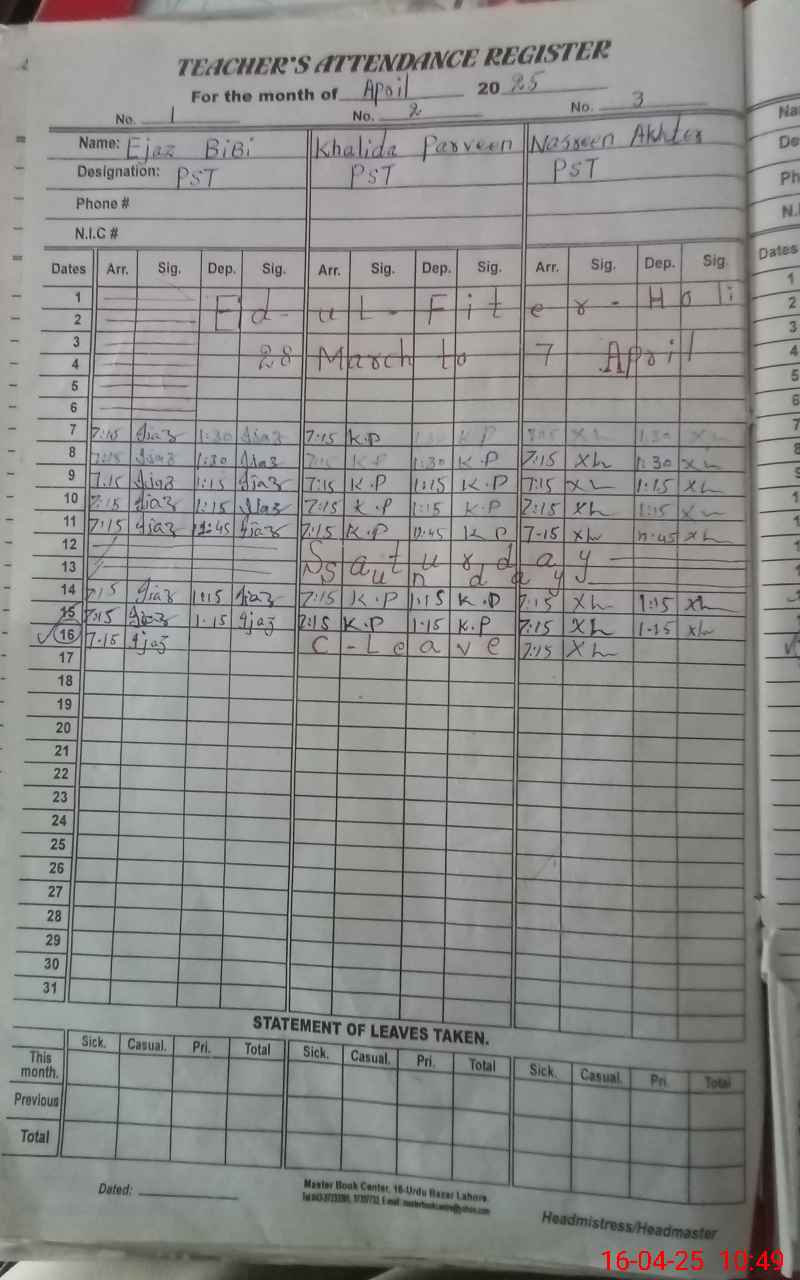 TEACHER'S ATTENDANCE REGISTER
For the month of April 20 25
No. 1 No. 2 No. 3
Name: Ejaz BiBi Khalida Parveen Nasreen Akhter
Designation: PST PST PST
Phone #
N.I.C #
Dates Arr. Sig. Dep. Sig. Arr. Sig. Dep. Sig. Arr. Sig. Dep. Sig
1 Ed-ul-Fiter-Holi
2
3 28 March to 7 April
4
5
6
7 7:15 1:30 7:15 K.P K P 1:30
8 7:15 1:30 K P 1:30 K.P 7:15 1:30
9 7.15 1:15 7:15 K.P 1:15 K.P 7:15 1:15
10 7:15 1:15 7:15 K.P 1:15 K.P 7:15 1:15
11 7:15 12:45 7:15 K.P 12:45 K P 7-15 12:45
12 Saturday
13 Sunday
14 7:15 1:15 7:15 K.P 1:15 K.P 7:15 1:15
15 7:15 1.15 7:15 K.P 1-15 K.P 7:15 1-15
16 7-15 C-Leave 7:15
17
18
19
20
21
22
23
24
25
26
27
28
29
30
31
STATEMENT OF LEAVES TAKEN.
Sick. Casual. Pri. Total Sick. Casual. Pri. Total Sick. Casual. Pri. Total
This month.
Previous
Total
Dated:
Master Book Center, 16-Urdu Bazar Lahore.
Headmistress/Headmaster
16-04-25 10:49